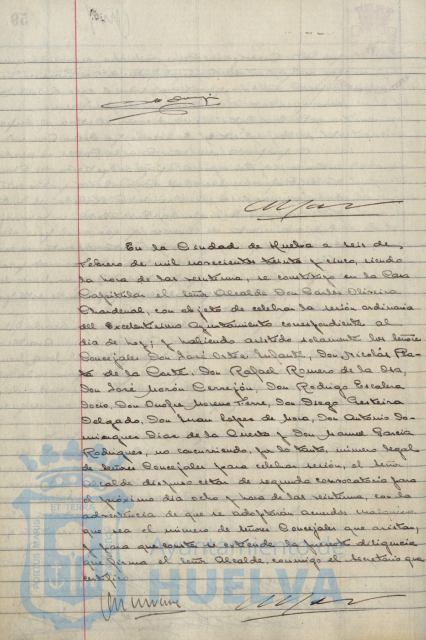 En la Ciudad de Huelva a seis de
Febrero de mil novecientos treinta y cinco, siendo
la hora de las veintiuna, se constituyó en la Casa
Capitular el señor Alcalde Don Carlos Oliveira
Chardenal, con objeto de celebrar la sesión ordinaria
del Excelentísimo Ayuntamiento correspondiente al
día de hoy; y habiendo asistido solamente los señores
Concejales Don José Ortiz Infante, Don Nicolás
de la Corte, Don Rafael Romero de la Osa,
Don José Morón Cerrejón, Don Rodrigo Escalera
Don Onofre Moreno Don Diego
Delgado, Don Juan López de Mora, Don Antonio Do-
mínguez Díaz de la Cuesta y Don Manuel García
Rodríguez, no concurriendo, por lo tanto, número legal
de señores Concejales para celebrar sesión, el señor
Alcalde dispuso citar de segunda convocatoria para
el próximo día ocho y hora de las veintiuna, con la
advertencia de que se adoptarán acuerdos cualquiera
que sea el número de señores Concejales que asistan,
y para que conste se extiende la presente diligencia
que firma el señor Alcalde, conmigo el Secretario que
certifico.
Ayuntamiento de
HUELVA